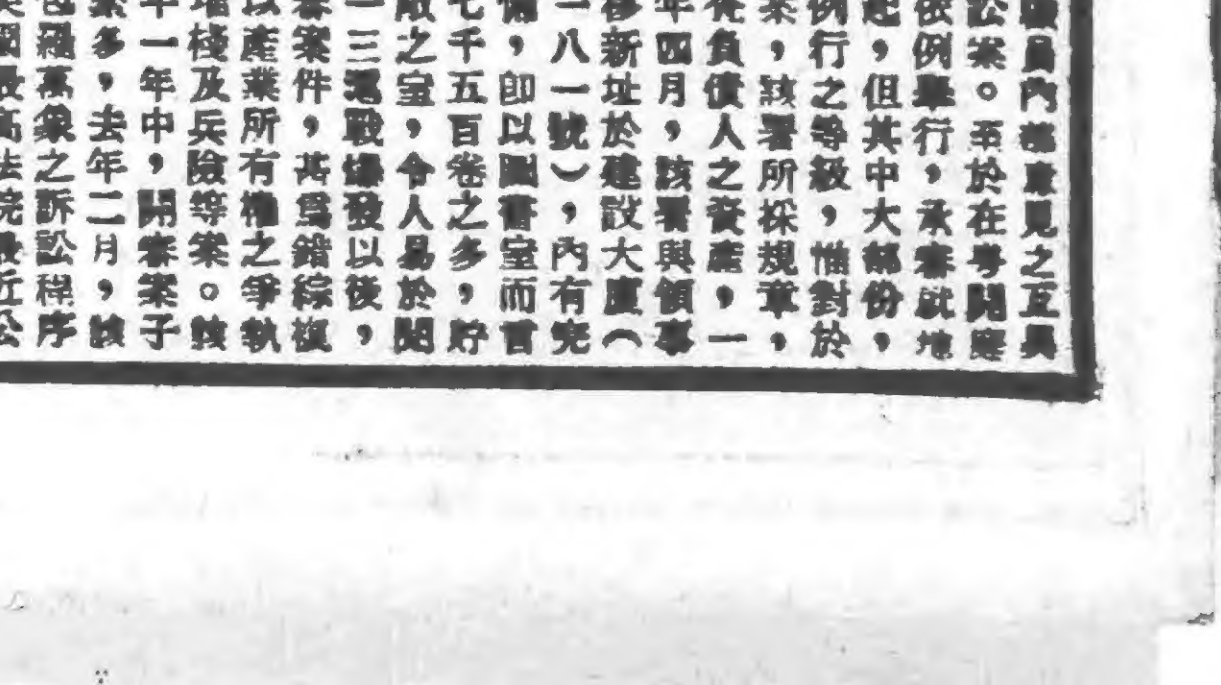 員內部意見之互異
訟案。至於在粵閩應
依例舉行,承審就地
起,但其中大部份,
例行之等級,惟對於
案,該署所採規章,
負債人之資產,一
年四月,該署與領事
移新址於建設大廈(
二八一號),內有完
備,即以圖書室而言
七千五百卷之多,貯
敞之室,令人易於閱
一三滬戰爆發以後,
審案件,甚爲錯綜複
以產業所有權之爭執
堆棧及兵險等案。該
年一年中,開審案子
案多,去年二月,該
包羅萬象之訴訟程序
英國最高法院最近公